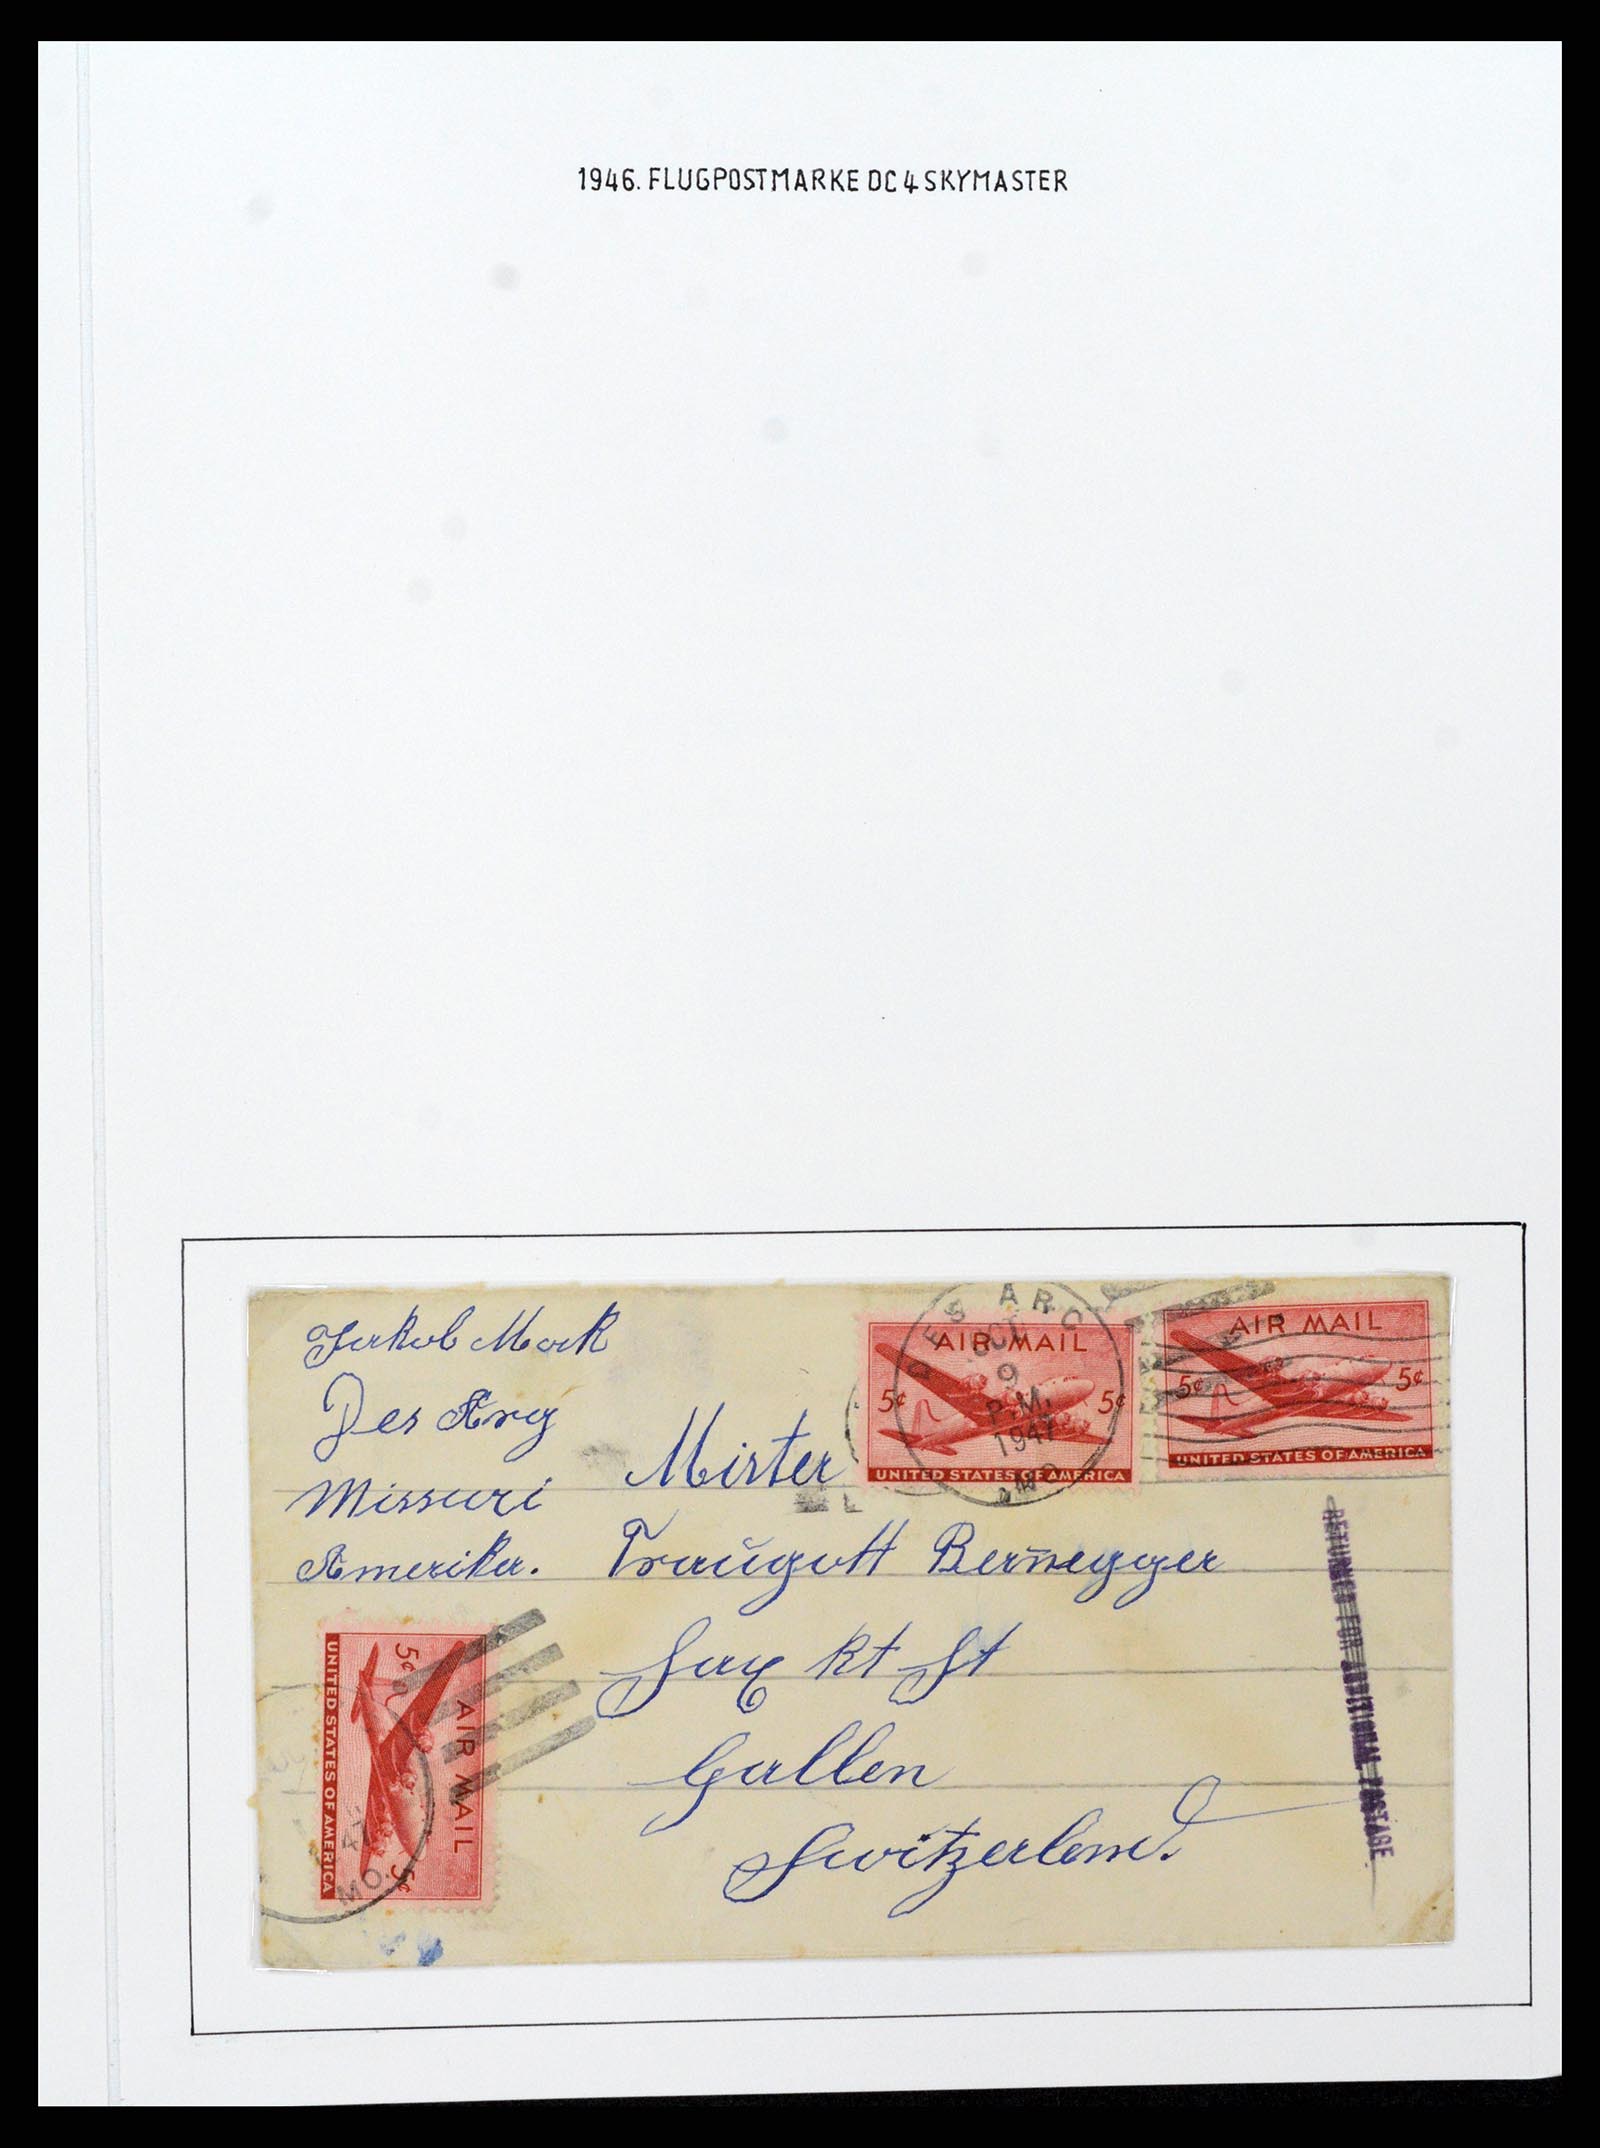 1946. FLUGPOSTMARKE DC 4 SKYMASTER
Jakob Mock
Des Arg
Missuri
Amerika.
DES ARC
OCT
9
P.M.
1947
MO.
AIR MAIL
5¢ 5¢
UNITED STATES OF AMERICA
AIR MAIL
5¢ 5¢
UNITED STATES OF AMERICA
Mister
Traŭgott Berñegger
Sax kt St
Gallen
Switzerland.
RETURNED FOR ADDITIONAL POSTAGE
AIR MAIL
5¢ 5¢
UNITED STATES OF AMERICA
47
MO.